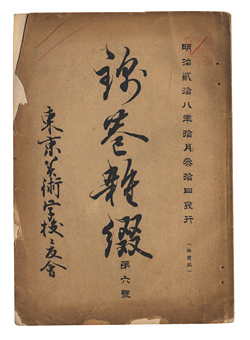 明治貳拾八年拾月叁拾日發行
（非賣品）
錦巷雜綴
第六號
東京美術学校々友會